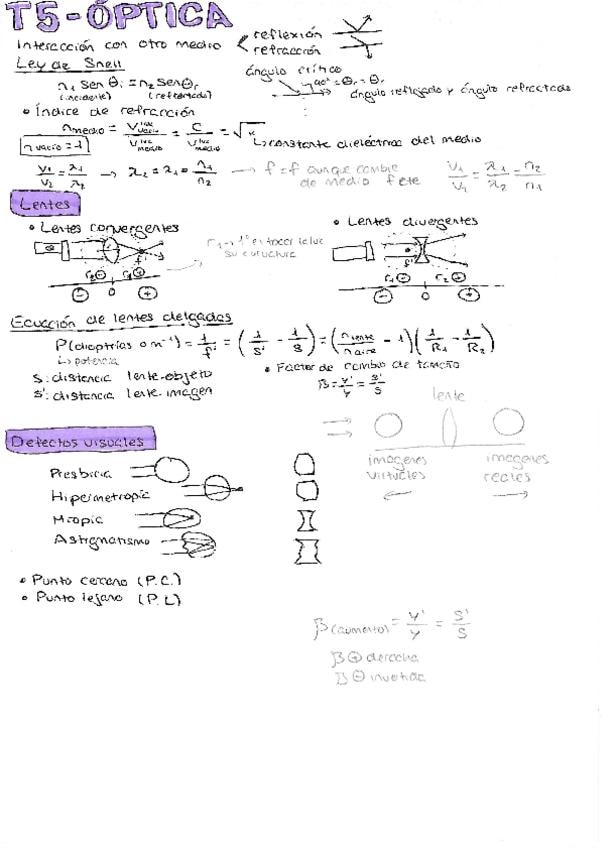 T5-ÓPTICA
Interacción con otro medio < reflexión
refracción
Ley de Snell
n₁ sen θᵢ = n₂ sen θᵣ
(incidente) (refractado)
ángulo crítico
90° = θᵣ - θᵣ
ángulo reflejado y ángulo refractado
• Índice de refracción
n medio = V luz vacío / V luz medio = C / V luz medio = √K
↳ constante dieléctrica del medio
n vacío = 1
V₁/V₂ = λ₁/λ₂ → λ₂ = λ₁ · n₁/n₂ → f = f aunque cambie de medio f cte
V₁/V₁ = λ₁/λ₂ = n₂/n₁
Lentes
• Lentes convergentes
• Lentes divergentes
r₁ → 1º en tocar la luz
su curvatura
r₂⊖ r₁⊕
r₁⊖ r₂⊕
⊖ 0 ⊕
⊖ 0 ⊕
Ecuación de lentes delgadas
P(dioptrías o m⁻¹) = 1/f' = (1/s' - 1/s) = (n lente/n aire - 1)(1/R₁ - 1/R₂)
↳ potencia
s: distancia lente-objeto
s': distancia lente-imagen
• Factor de cambio de tamaño
β = y'/y = s'/s
lente
imágenes virtuales
←
imágenes reales
→
Defectos visuales
Presbicia
Hipermetropía
Miopía
Astigmatismo
• Punto cercano (P.C.)
• Punto lejano (P.L)
β(aumento) = y'/y = s'/s
β ⊕ derecha
β ⊖ invertida